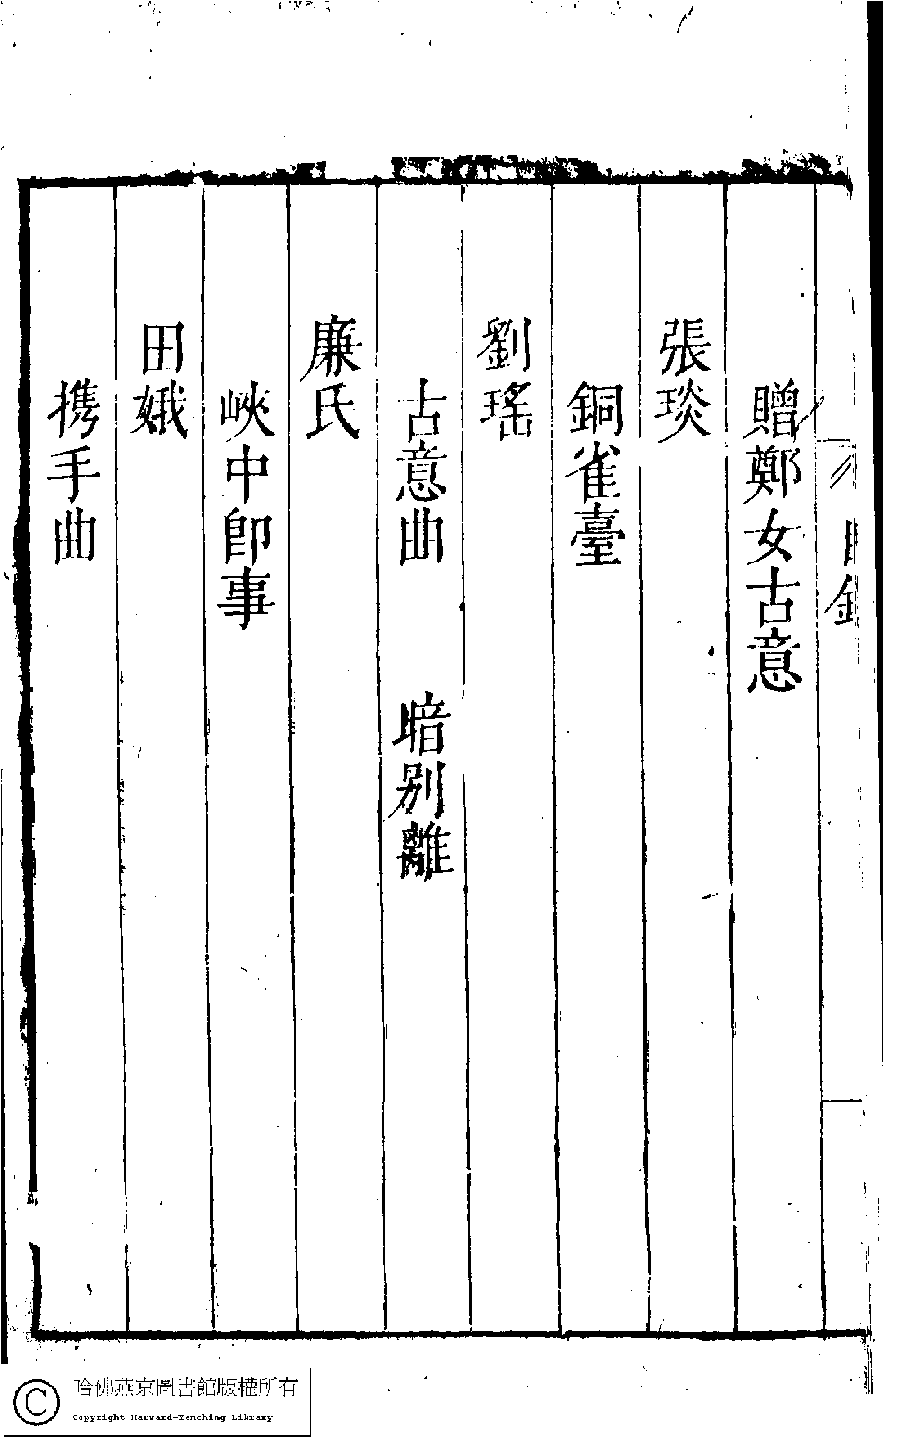 目錄
贈鄭女古意
張琰
銅雀臺
劉瑤
古意曲　暗別離
廉氏
峽中即事
田娥
携手曲
哈佛燕京圖書館版權所有
Copyright Harvard-Yenching Library